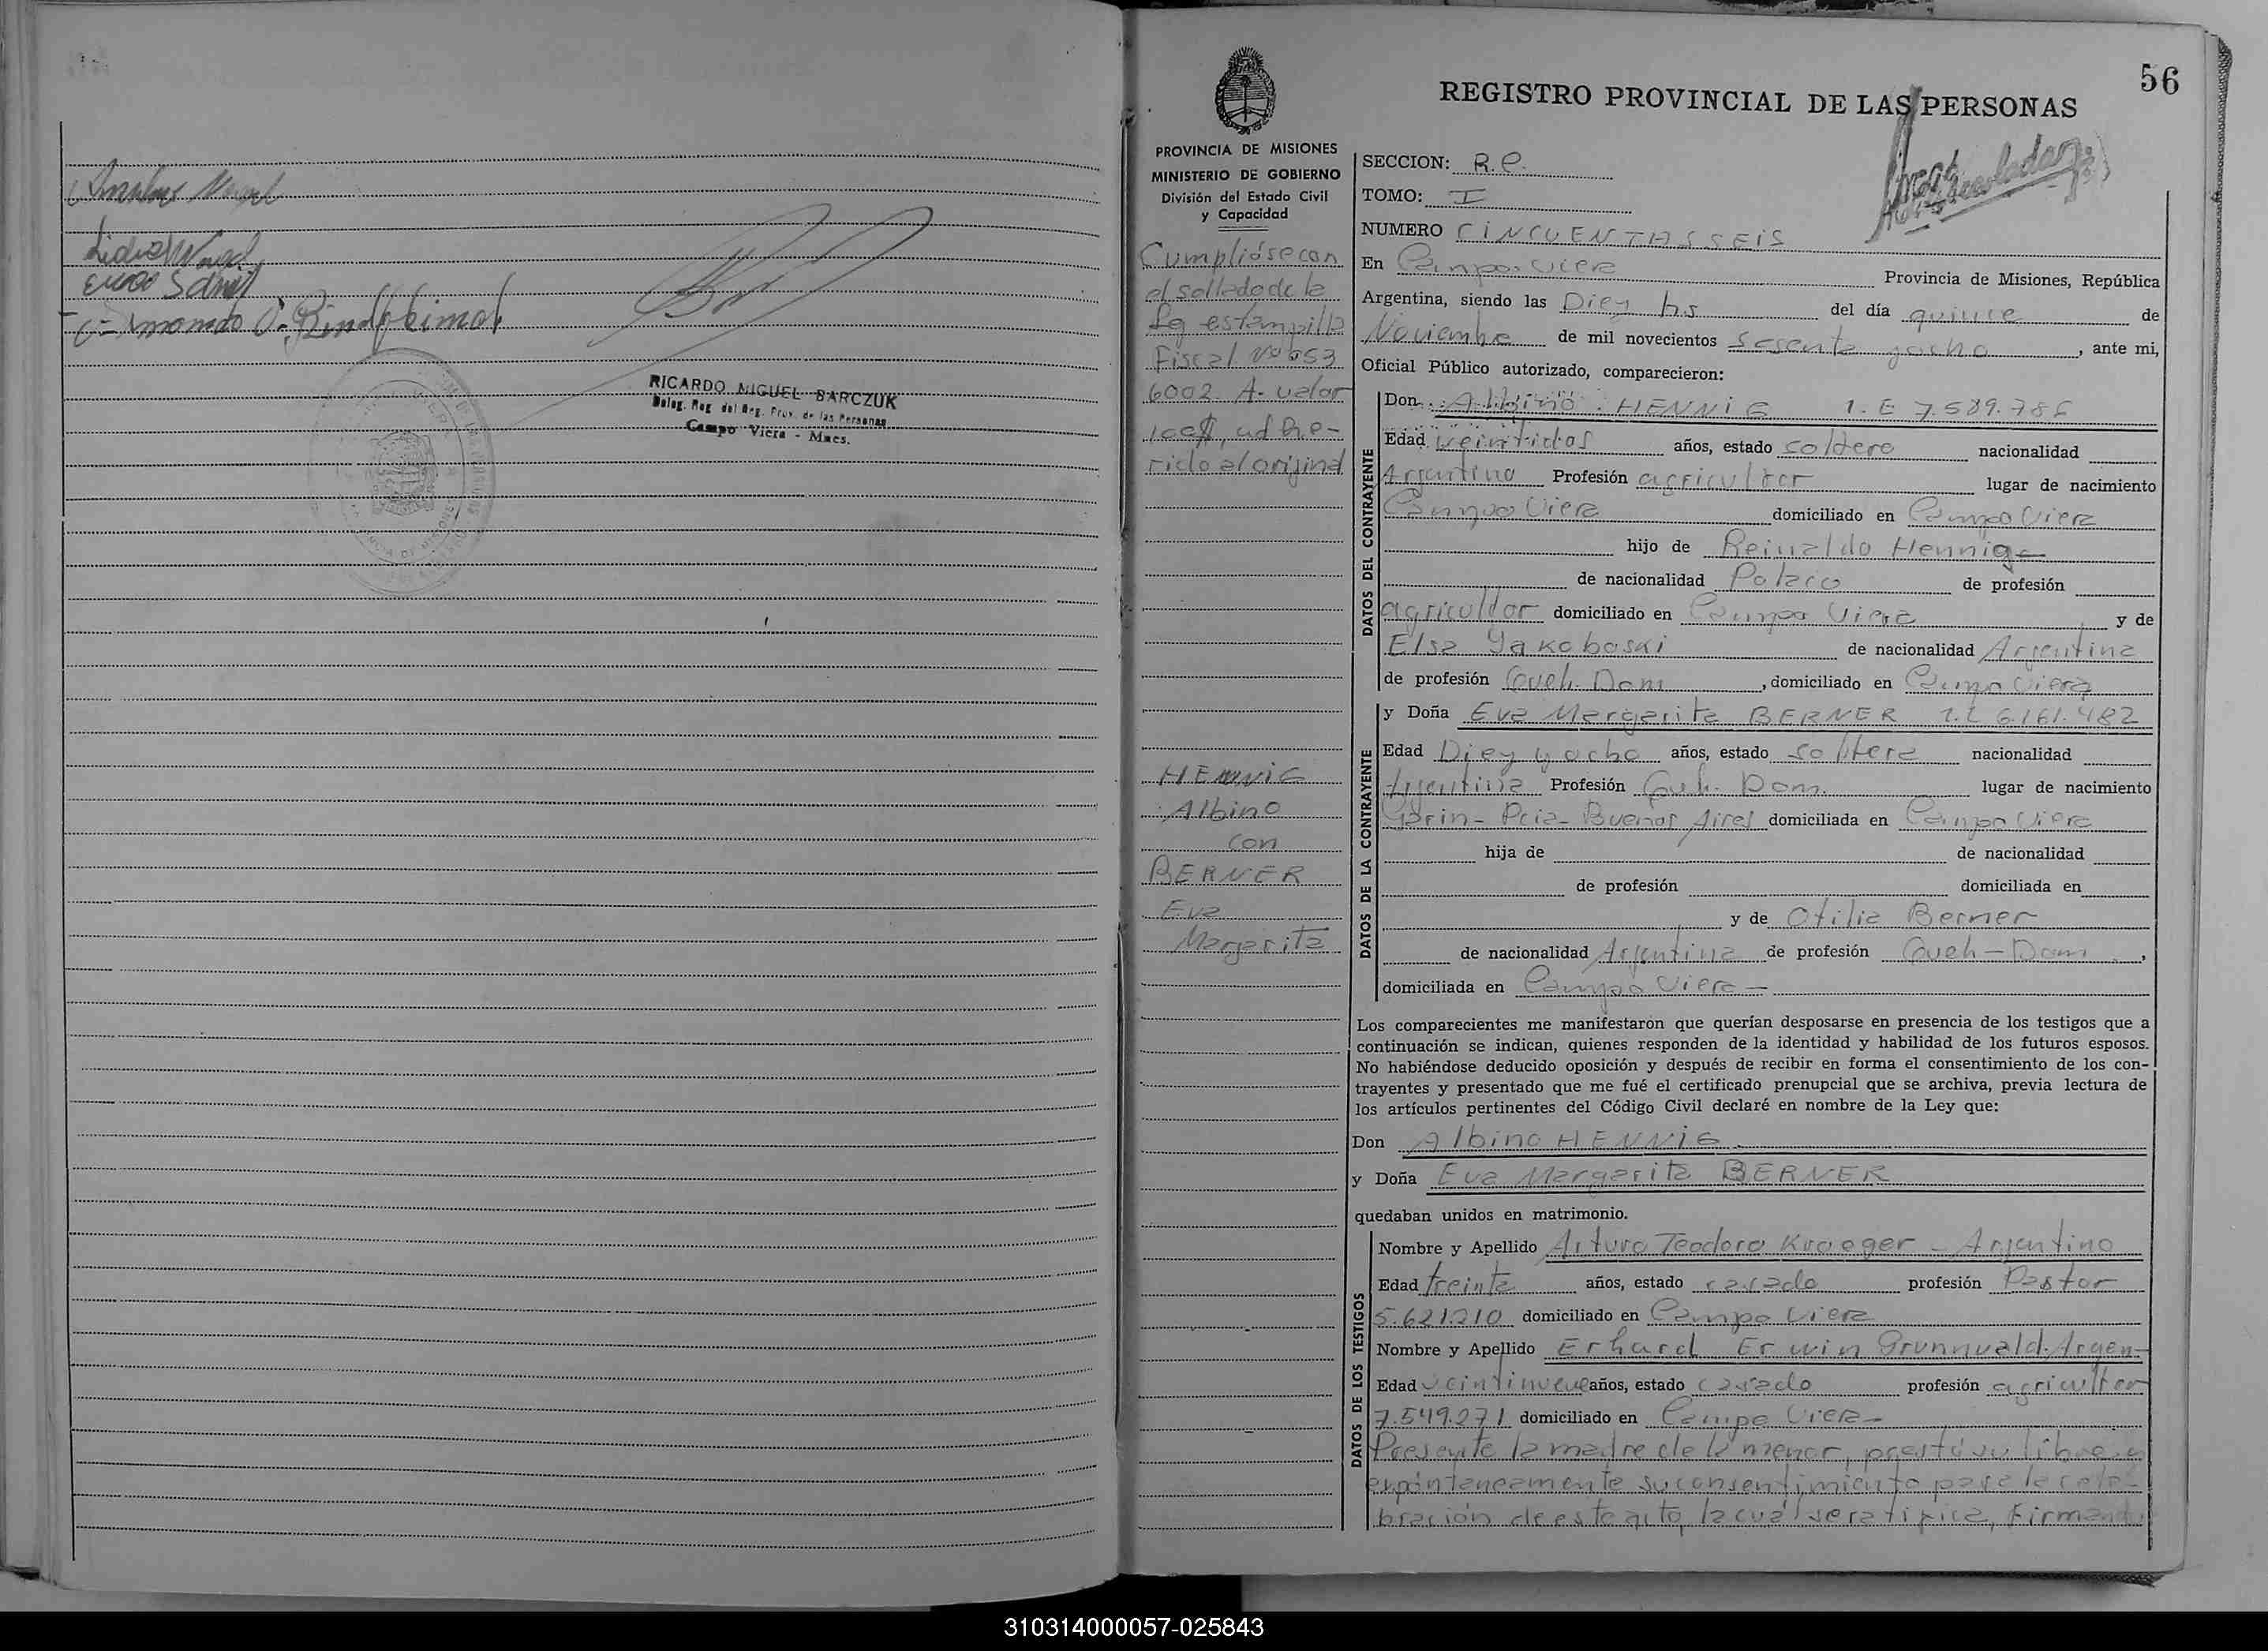 RICARDO MIGUEL BARCZUK
Campo Viera - Mnes.
56
REGISTRO PROVINCIAL DE LAS PERSONAS
PROVINCIA DE MISIONES
MINISTERIO DE GOBIERNO
División del Estado Civil
y Capacidad
Cumplióse con
el sellado de
estampilla
Fiscal
6002 A. valor
100$, adhe-
rido al original
HENNIG
Albino
con
BERNER
Eva
Margarita
SECCION: R.C.
TOMO: I
NUMERO CINCUENTA Y SEIS
En Campo Viera Provincia de Misiones, República
Argentina, siendo las Diez hs del día quince de
Noviembre de mil novecientos sesenta y ocho, ante mi,
Oficial Público autorizado, comparecieron:
DATOS DEL CONTRAYENTE
Don Albino HENNIG 7.589.786
Edad veintidos años, estado soltero nacionalidad
Argentino Profesión agricultor lugar de nacimiento
Campo Viera domiciliado en Campo Viera
hijo de Reinaldo Hennig
de nacionalidad Polaco de profesión
agricultor domiciliado en Campo Viera y de
Elsa Yakoboski de nacionalidad Argentina
de profesión Queh. Dom, domiciliado en Campo Viera
DATOS DE LA CONTRAYENTE
y Doña Eva Margarita BERNER 6.161.482
Edad Diez y ocho años, estado soltera nacionalidad
Argentina Profesión Queh. Dom. lugar de nacimiento
Garin - Pcia - Buenos Aires domiciliada en Campo Viera
hija de de nacionalidad
de profesión domiciliada en
y de Otilia Berner
de nacionalidad Argentina de profesión Queh - Dom,
domiciliada en Campo Viera -
Los comparecientes me manifestaron que querían desposarse en presencia de los testigos que a
continuación se indican, quienes responden de la identidad y habilidad de los futuros esposos.
No habiéndose deducido oposición y después de recibir en forma el consentimiento de los con-
trayentes y presentado que me fué el certificado prenupcial que se archiva, previa lectura de
los artículos pertinentes del Código Civil declaré en nombre de la Ley que:
Don Albino HENNIG
y Doña Eva Margarita BERNER
quedaban unidos en matrimonio.
DATOS DE LOS TESTIGOS
Nombre y Apellido Arturo Teodoro Kroeger - Argentino
Edad treinta años, estado casado profesión Pastor
5.621.210 domiciliado en Campo Viera
Nombre y Apellido Erhard Erwin Grunnwald. Argen-
Edad veintinueve años, estado casado profesión agricultor
7.549.271 domiciliado en Campo Viera -
Presente la madre de la menor, prestó su libre y
expontaneamente su consentimiento para la cele-
bración de este acto, la cual se ratifica, firmando
310314000057-025843